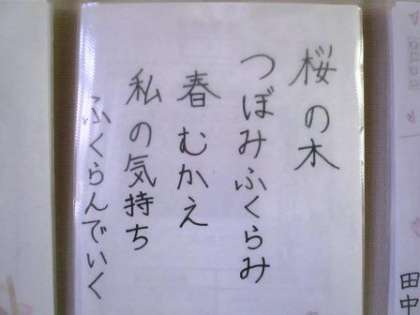 桜の木
つぼみふくらみ
春むかえ
私の気持ち
ふくらんでいく
田中